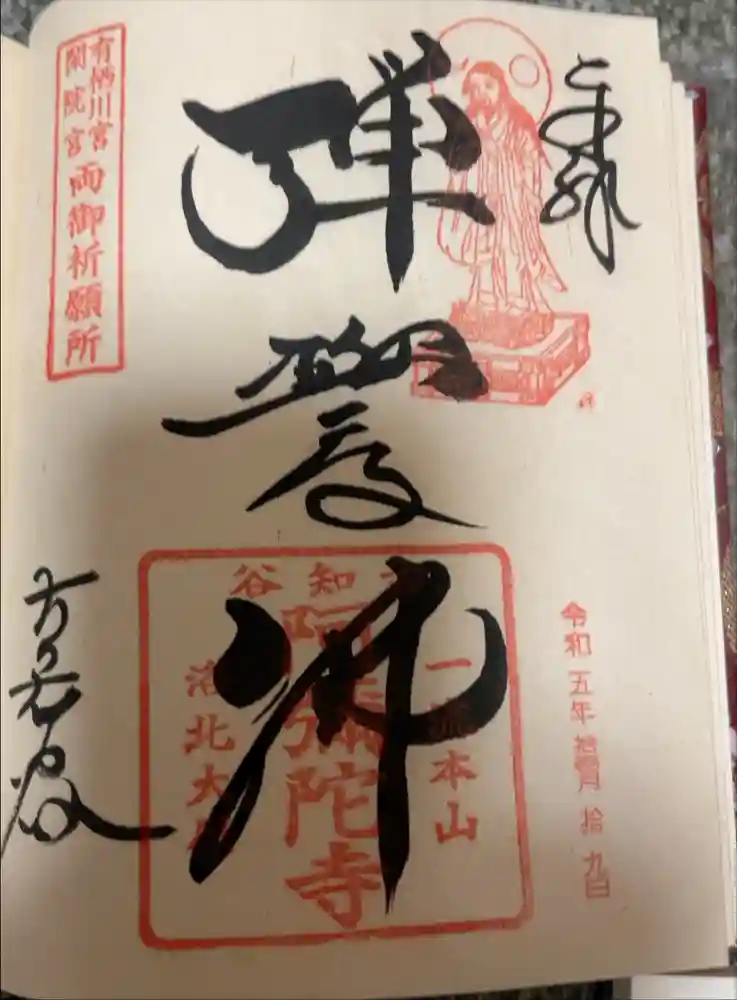 奉拝
令和五年拾壹月拾九日
彈誓佛
古知谷
一流本山
阿彌陀寺
洛北大原
有栖川宮
閑院宮
両御祈願所